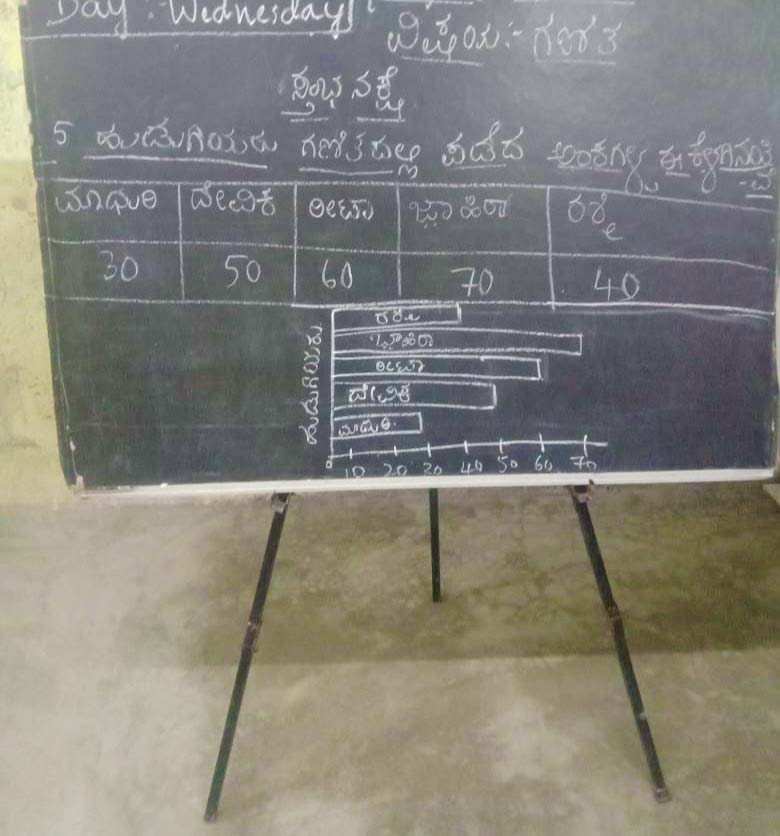 Day : Wednesday
ವಿಷಯ:- ಗಣಿತ
ಸ್ತಂಭ ನಕ್ಷೆ
5 ಹುಡುಗಿಯರು ಗಣಿತದಲ್ಲಿ ಪಡೆದ ಅಂಕಗಳು ಈ ಕೆಳಗಿನಂತಿ
-ವೆ
ಮಾಧುರಿ ದೇವಿಕ ರೀಟಾ ಜ಼ಾಹಿರಾ
30 50 60 70 40
ಹುಡುಗಿಯರು
ಜ಼ಾಹಿರಾ
ರೀಟಾ
ದೇವಿಕ
ಮಾಧುರಿ
0 10 20 30 40 50 60 70